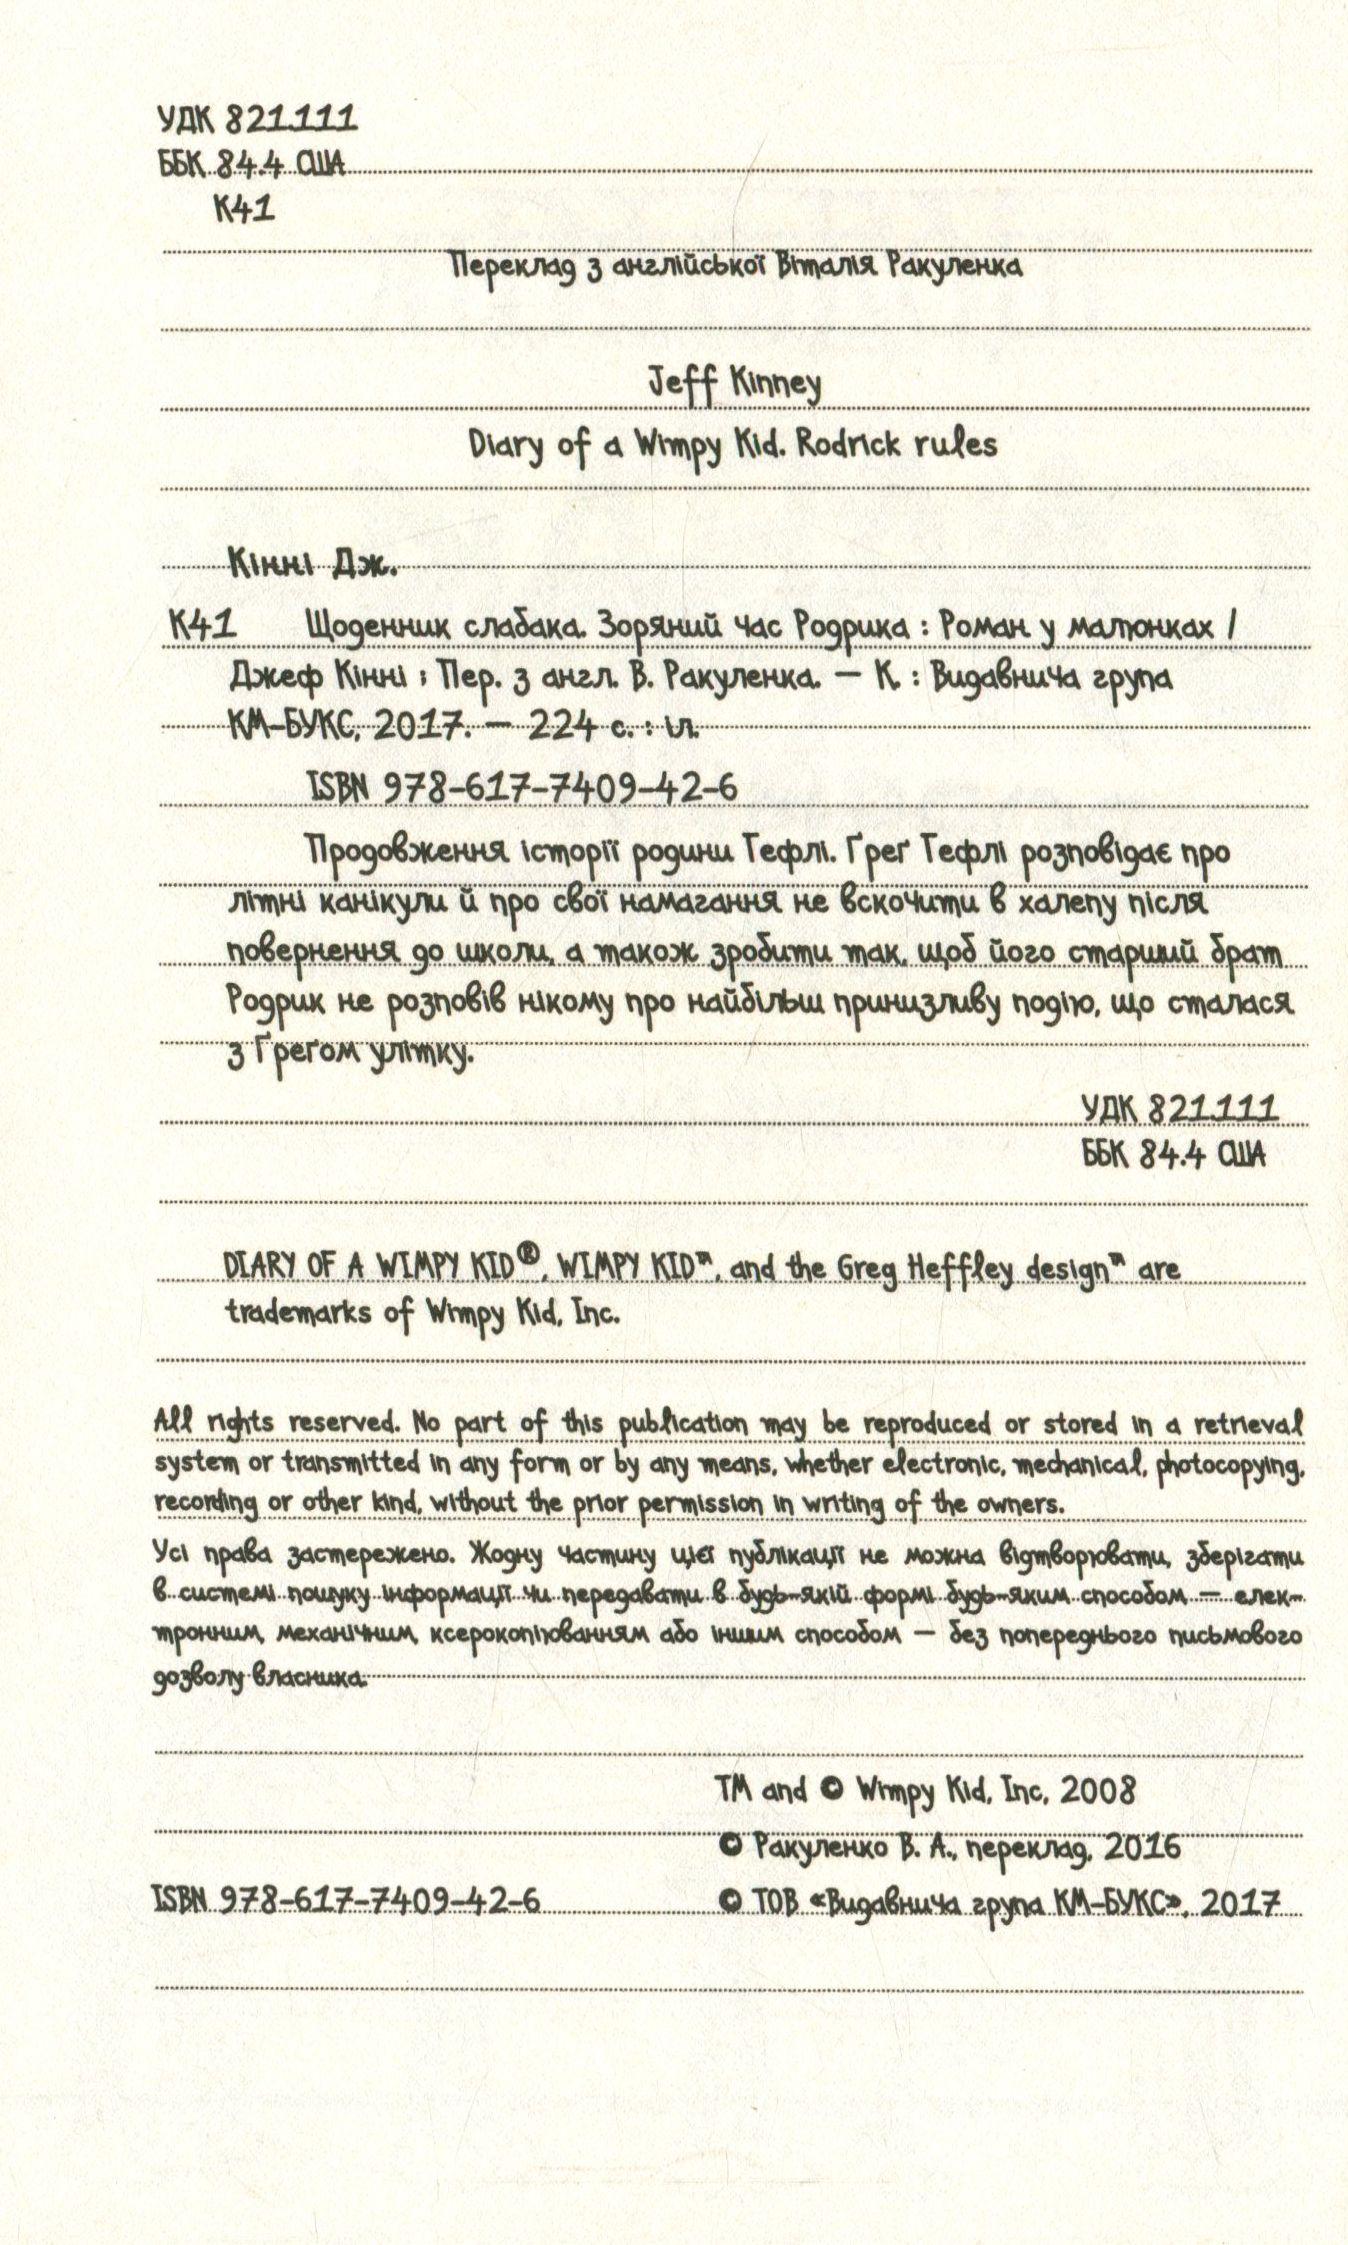 УДК 821.111
ББК 84.4 США
К41
Переклад з англійської Віталія Ракуленка
Jeff Kinney
Diary of a Wimpy Kid. Rodrick rules
Кінні Дж.
К41 Щоденник слабака. Зоряний час Родрика : Роман у малюнках /
Джеф Кінні ; Пер. з англ. В. Ракуленка. — К. : Видавнича група
КМ-БУКС, 2017. — 224 с. : іл.
ISBN 978-617-7409-42-6
Продовження історії родини Гефлі. Ґреґ Гефлі розповідає про
літні канікули й про свої намагання не вскочити в халепу після
повернення до школи, а також зробити так, щоб його старший брат
Родрик не розповів нікому про найбільш принизливу подію, що сталася
з Ґреґом улітку.
УДК 821.111
ББК 84.4 США
DIARY OF A WIMPY KID®, WIMPY KID™, and the Greg Heffley design™ are
trademarks of Wimpy Kid, Inc.
All rights reserved. No part of this publication may be reproduced or stored in a retrieval
system or transmitted in any form or by any means, whether electronic, mechanical, photocopying,
recording or other kind, without the prior permission in writing of the owners.
Усі права застережено. Жодну частину цієї публікації не можна відтворювати, зберігати
в системі пошуку інформації чи передавати в будь-якій формі будь-яким способом — елек-
тронним, механічним, ксерокопіюванням або іншим способом — без попереднього письмового
дозволу власника.
TM and © Wimpy Kid, Inc, 2008
© Ракуленко В. А., переклад, 2016
ISBN 978-617-7409-42-6 © ТОВ «Видавнича група КМ-БУКС», 2017